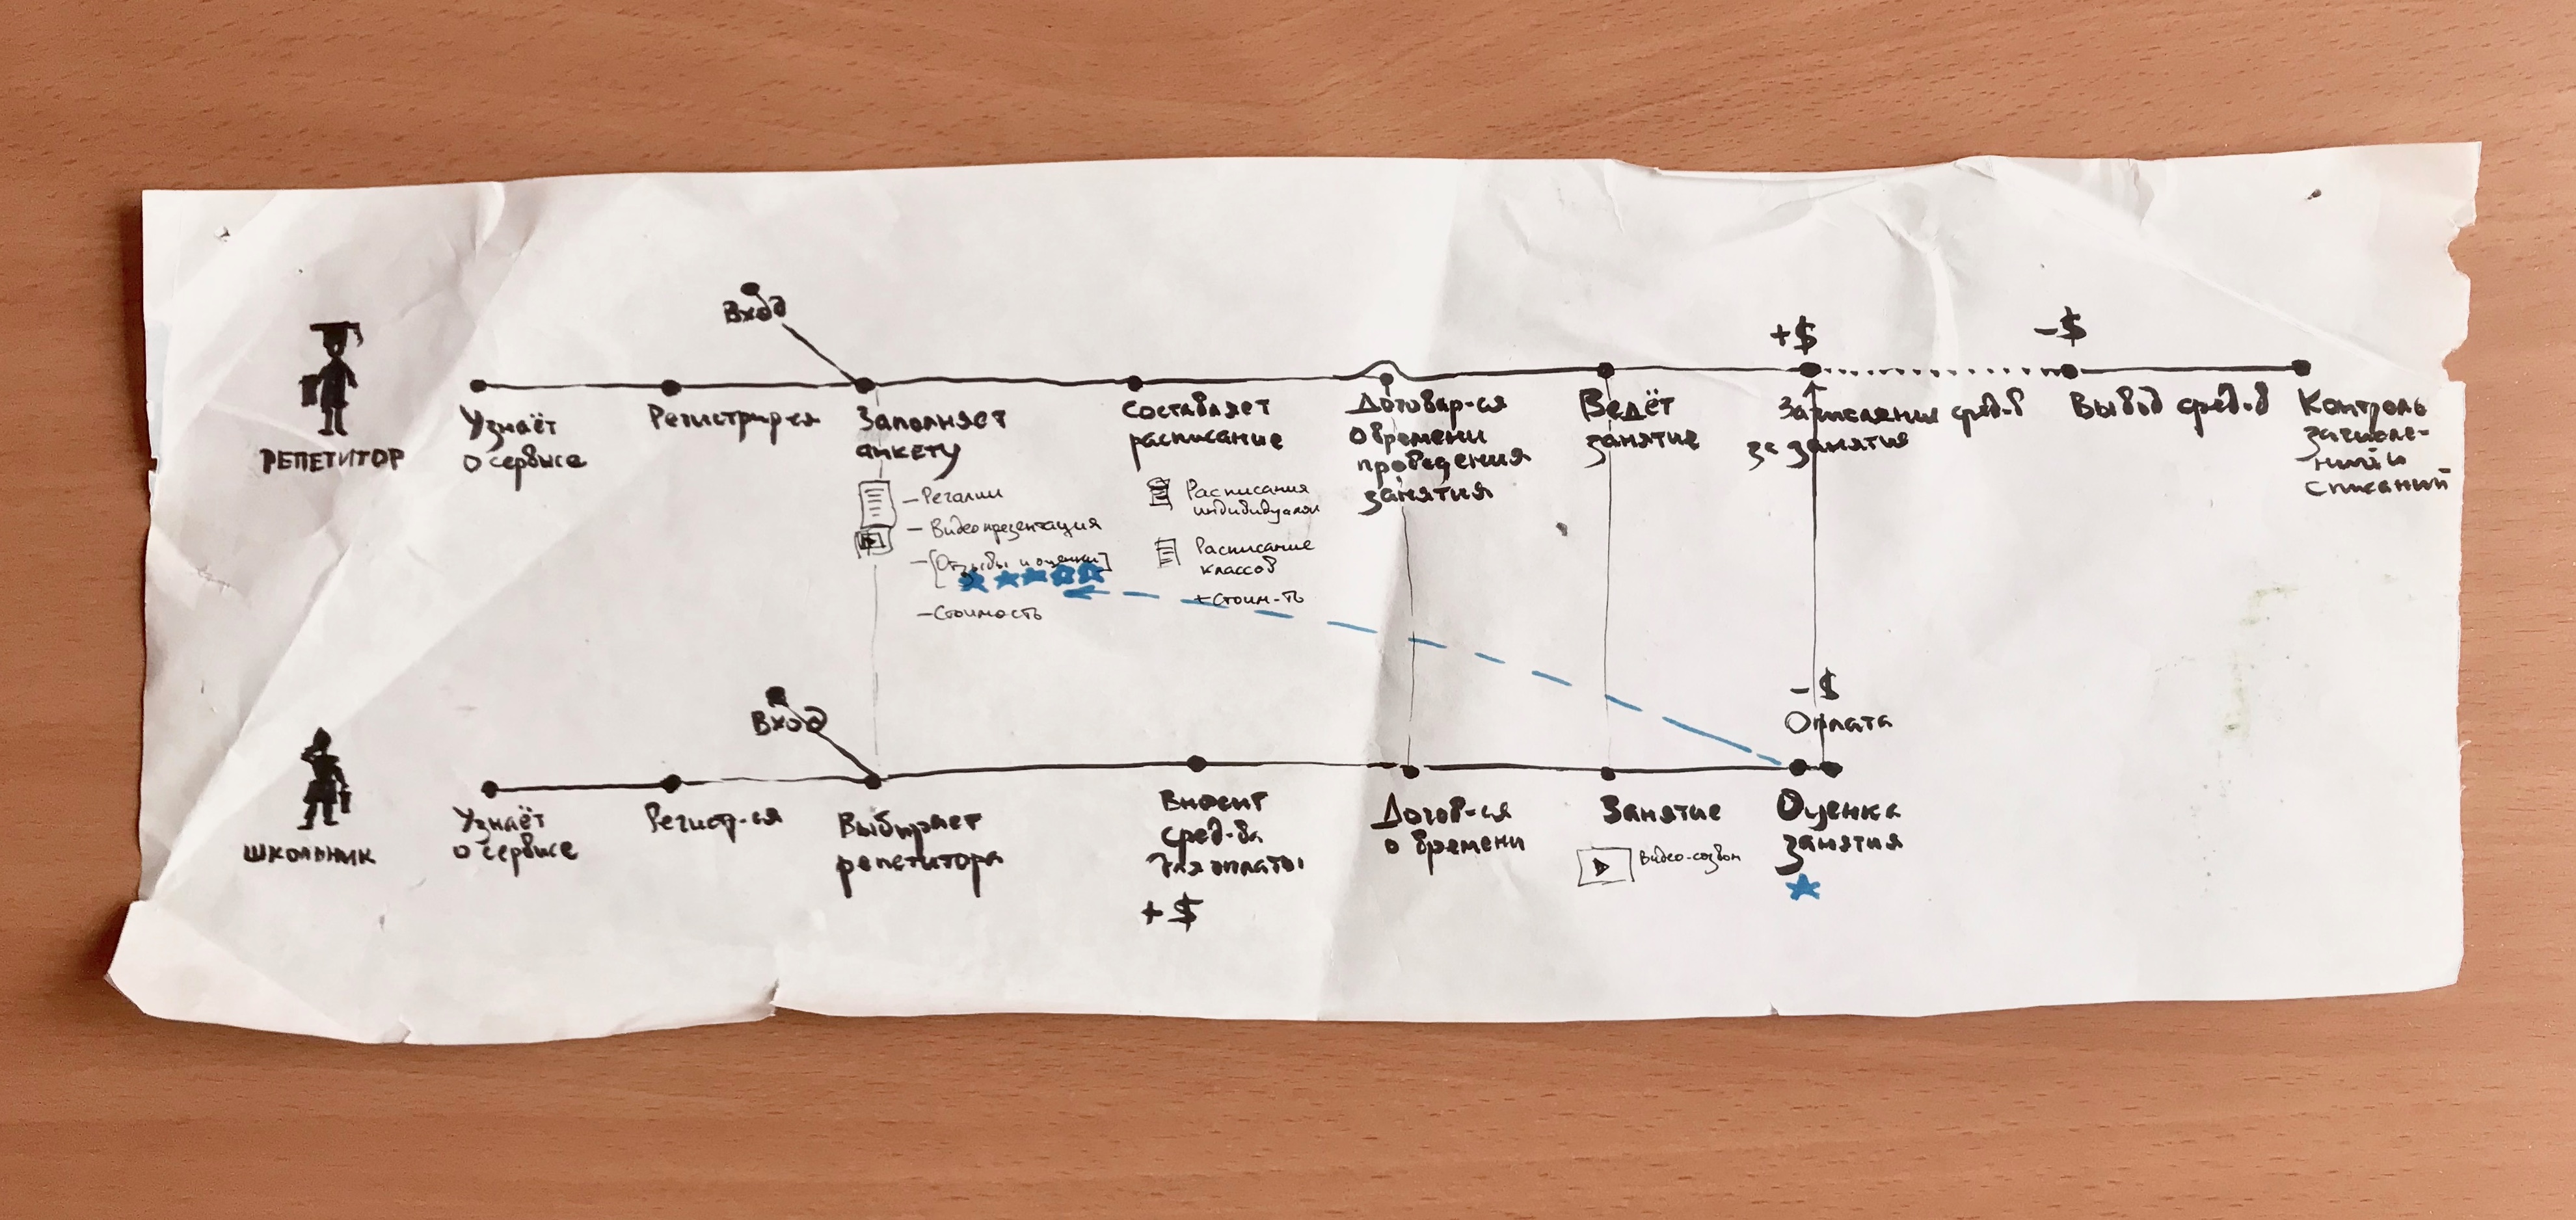 Вход
+$
–$
РЕПЕТИТОР
Узнаёт
о сервисе
Регистрир-ся
Заполняет
анкету
– Регалии
– Видеопрезентация
– [Отзывы и оценки]
– Стоимость
Составляет
расписание
Расписания
индивидуальн
Расписание
классов
+ Стоим-ть
Договар-ся
о времени
проведения
занятия
Ведёт
занятие
средств
за занятия
Вывод сред-в
Контроль
зачисле-
ний и
списаний
Вход
–$
Оплата
ШКОЛЬНИК
Узнаёт
о сервисе
Регистр-ся
Выбирает
репетитора
Вносит
сред-ва
для оплаты
+$
Догов-ся
о времени
Занятие
Видео-созвон
Оценка
занятия